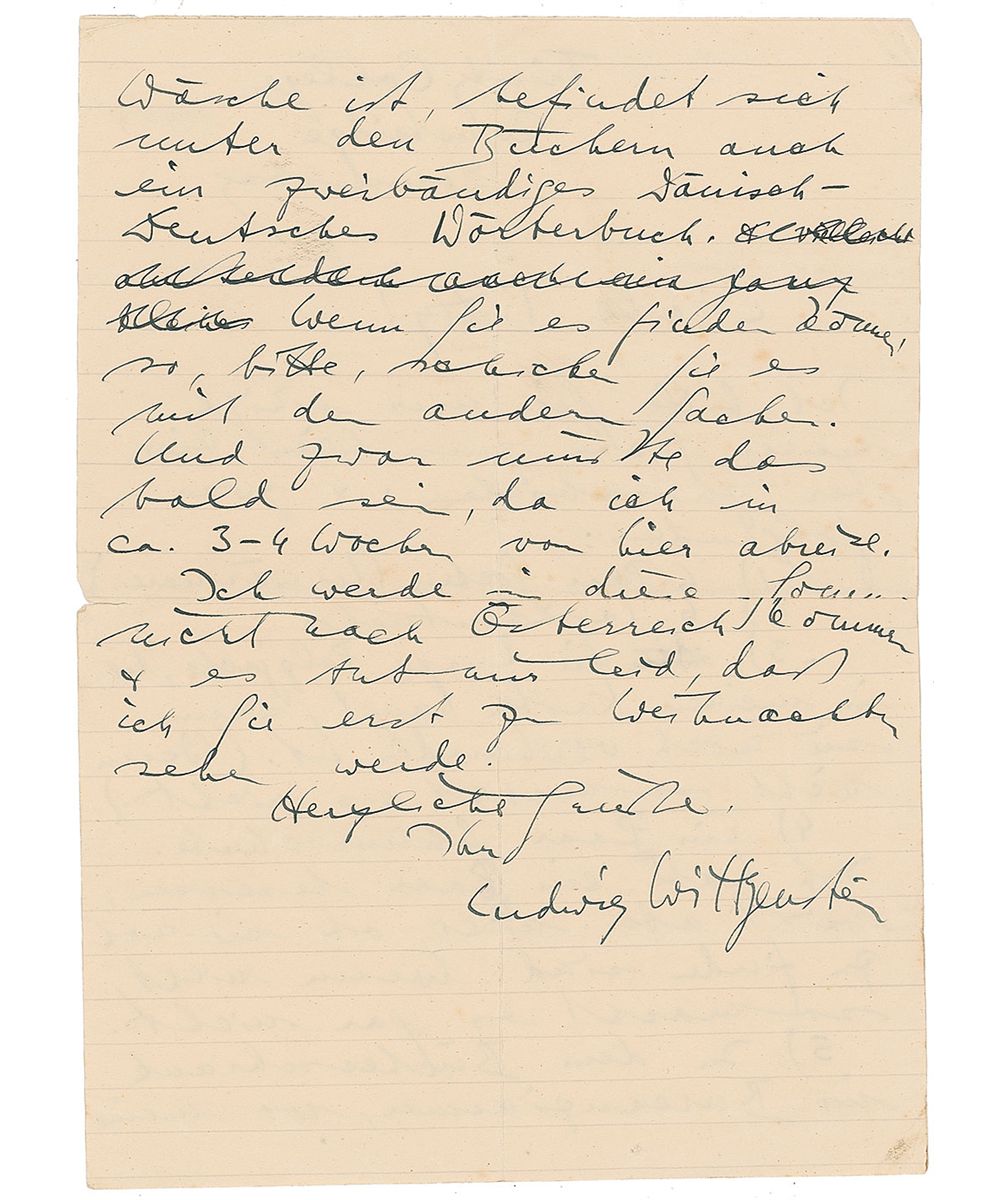 Wäsche ist, befindet sich
unter den Büchern auch
ein zweibändiges Dänisch-
Deutsches Wörterbuch.
Wenn Sie es finden können,
so, bitte, schicken Sie es
mit den andern Sachen.
Und zwar müßte das
bald sein, da ich in
ca. 3-4 Wochen von hier abreise.
Ich werde in diese
nicht nach Österreich kommen
& es tut mir leid, daß
ich Sie erst zu Weihnachten
sehen werde.
Herzliche Grüße.
Ihr
Ludwig Wittgenstein